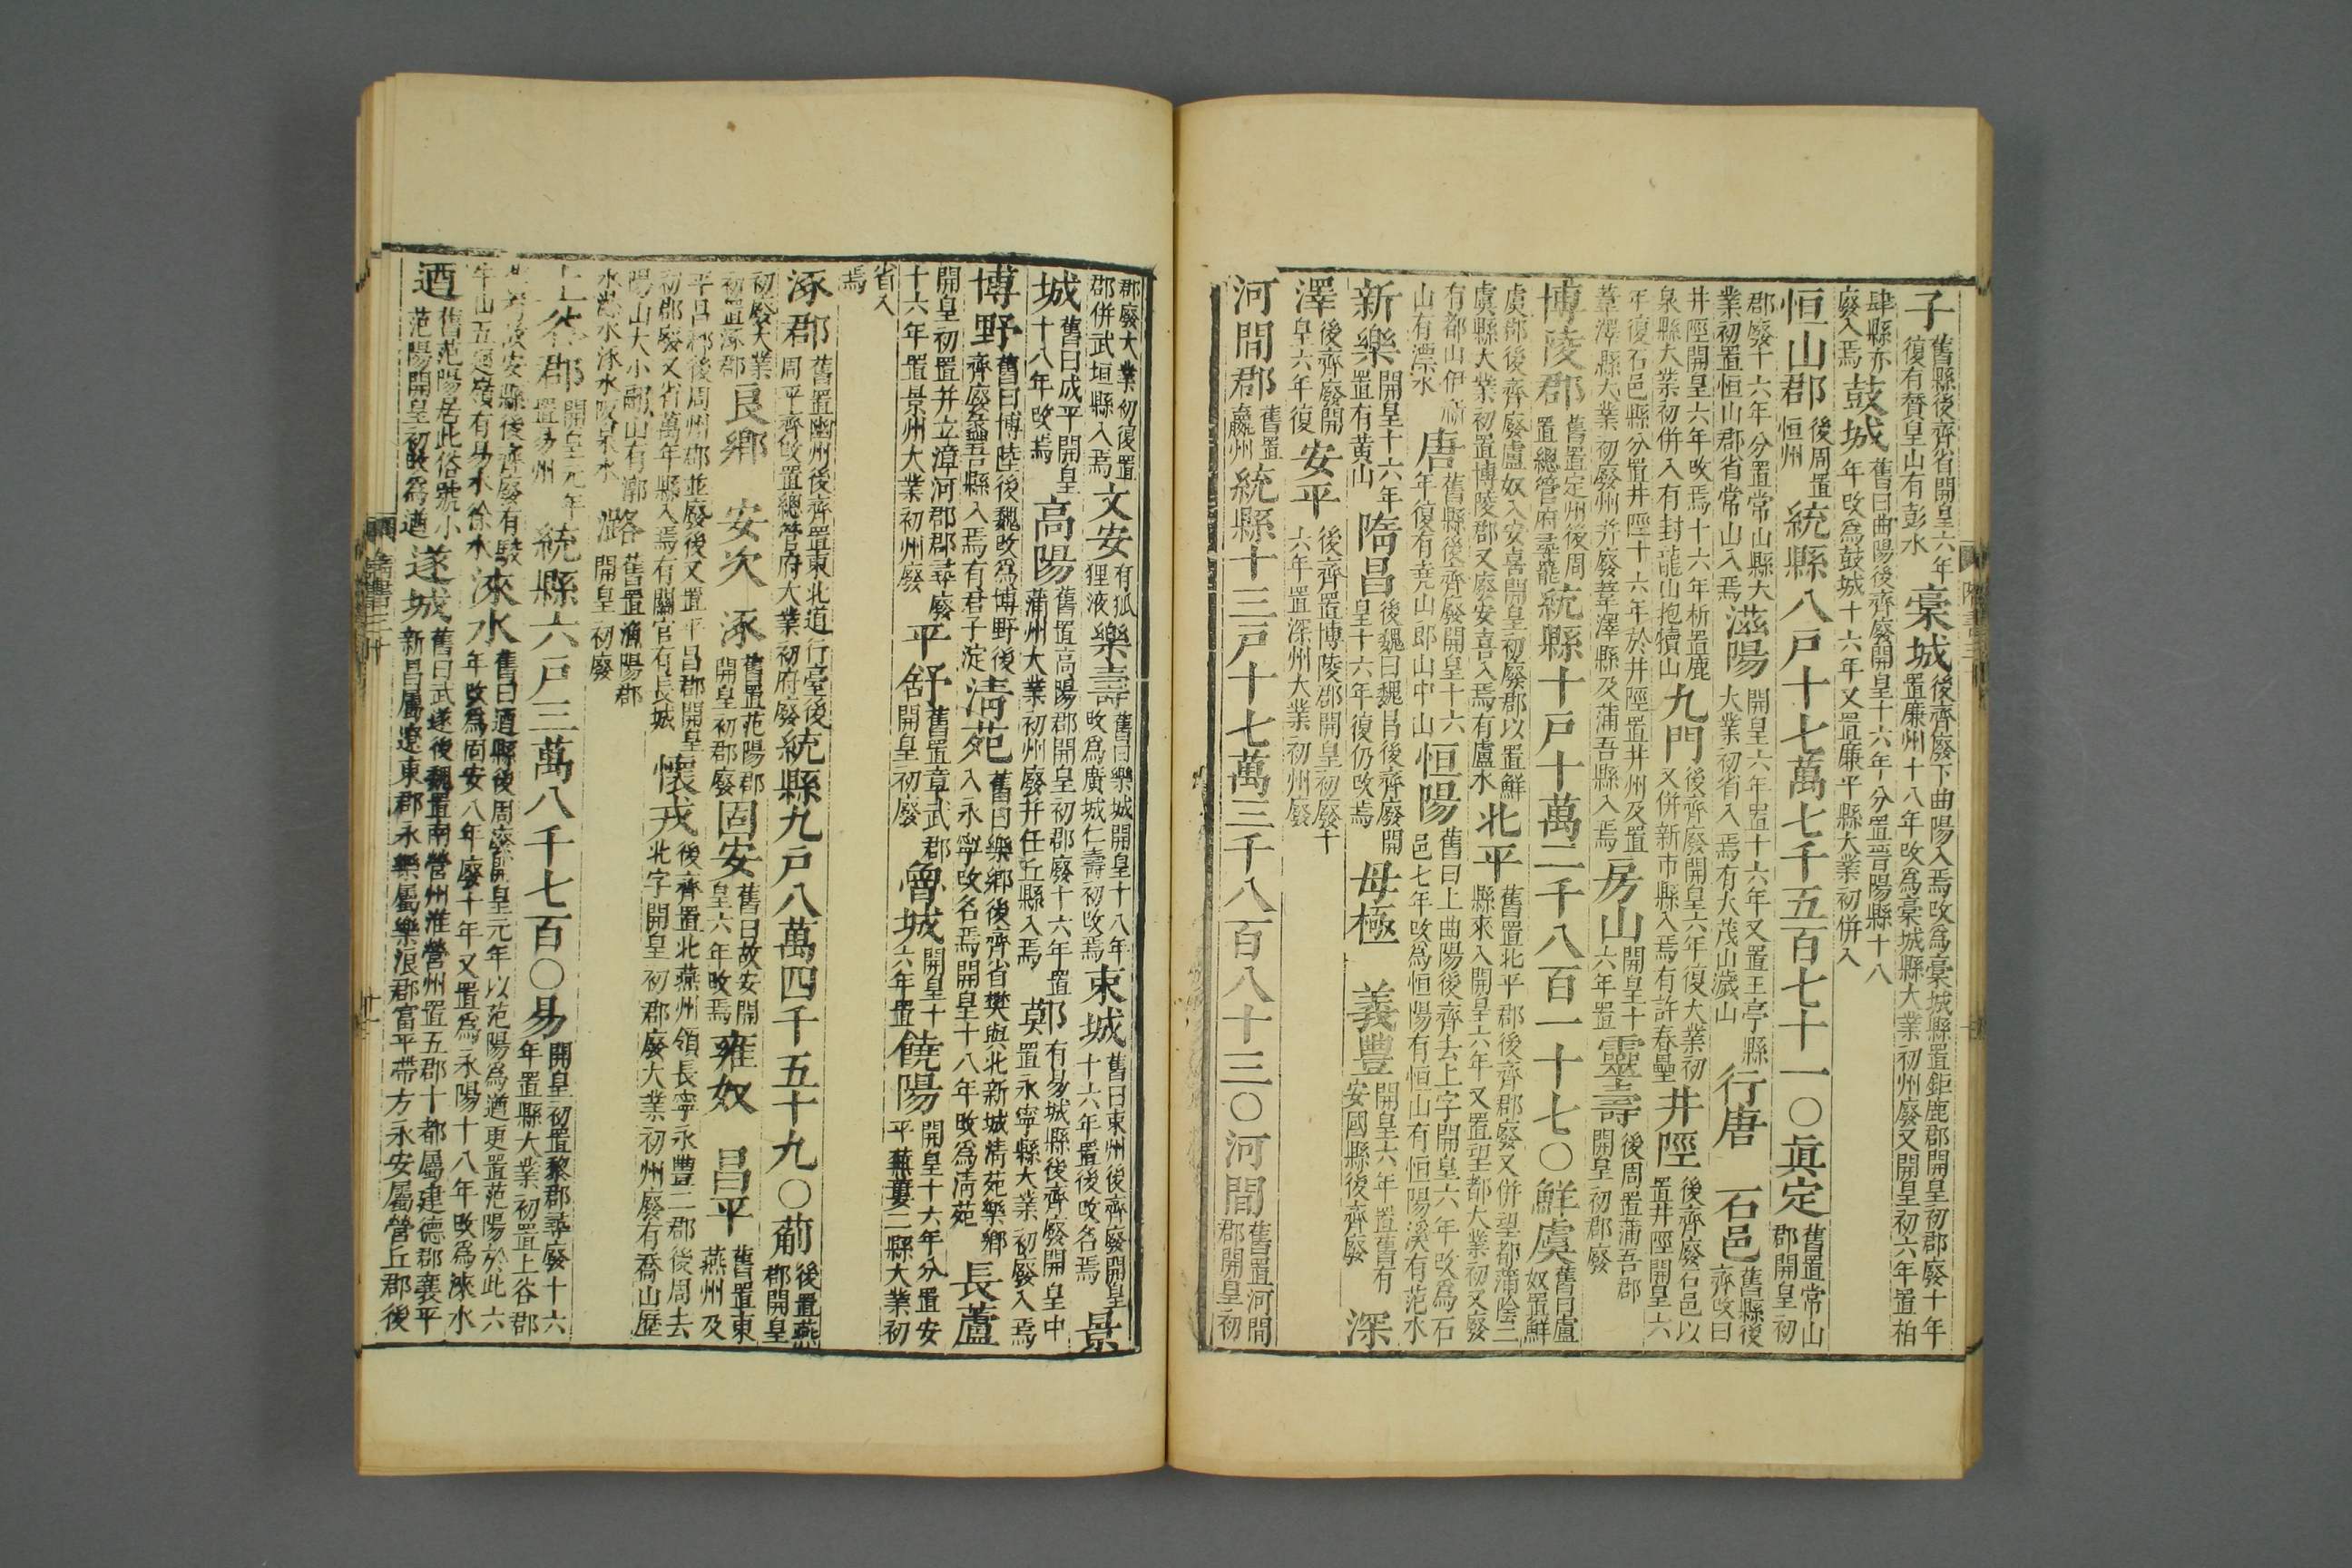 子舊縣後齊省開皇六年復有贊皇山有彭水槀城後齊廢下曲陽入焉改爲槀城縣置鉅鹿郡開皇初郡廢十年置廉州十八年改爲槀城縣大業初州廢又開皇初六年置柏
肆縣亦廢入焉鼓城舊曰曲陽後齊廢開皇十六年分置晉陽縣十八年改爲鼓城十六年又置廉平縣大業初併入
恒山郡後周置恒州統縣八戸十七萬七千五百七十一○眞定舊置常山郡開皇初
郡廢十六年分置常山縣大業初置恒山郡省常山入焉滋陽開皇六年置十六年又置王亭縣大業初省入焉有大茂山歲山行唐石邑舊縣後齊改曰
井陘開皇六年改焉十六年析置鹿泉縣大業初併入有封龍山抱犢山九門後齊廢開皇六年復大業初又併新市縣入焉有許春壘井陘後齊廢石邑以置井陘開皇六
年復石邑縣分置井陘十六年於井陘置井州及置葦澤縣大業初廢州并廢葦澤縣及蒲吾縣入焉房山開皇十六年置靈壽後周置蒲吾郡開皇初郡廢
博陵郡舊置定州後周置總管府尋罷統縣十戸十萬二千八百一十七○鮮虞舊曰盧奴置鮮
虞郡後齊廢盧奴入安喜開皇初廢郡以置鮮虞縣大業初置博陵郡又廢安喜入焉有盧水北平舊置北平郡後齊郡廢又併望都蒲陰二縣來入開皇六年又置望都大業初又廢
有都山伊祁山有濡水唐舊縣後齊廢開皇十六年復有堯山郎山中山恒陽舊曰上曲陽後齊去上字開皇六年改爲石邑七年改爲恒陽有恒山有恒陽溪有范水
新樂開皇十六年置有黄山隋昌後魏曰魏昌後齊廢開皇十六年復仍改焉毋極義豐開皇六年置舊有安國縣後齊廢深
澤後齊廢開皇六年復安平後齊置博陵郡開皇初廢十六年置深州大業初州廢
河間郡舊置瀛州統縣十三戸十七萬三千八百八十三○河間舊置河間郡開皇初
郡廢大業初復置郡併武垣縣入焉文安有狐狸液樂壽舊曰樂城開皇十八年改爲廣城仁壽初改焉束城舊曰束州後齊廢開皇十六年置後改名焉景
城舊曰成平開皇十八年改焉高陽舊置高陽郡開皇初郡廢十六年置蒲州大業初州廢并任丘縣入焉鄚有易城縣後齊廢開皇中置永寧縣大業初廢入焉
博野舊曰博陸後魏改爲博野後齊廢蠡吾縣入焉有君子淀清苑舊曰樂鄉後齊省樊輿北新城清苑樂鄉入永寧改名焉開皇十八年改爲清苑長蘆
開皇初置并立漳河郡郡尋廢十六年置景州大業初州廢平舒舊置章武郡開皇初廢魯城開皇十六年置饒陽開皇十六年分置安平蕪蔞二縣大業初
省入焉
涿郡舊置幽州後齊置東北道行臺後周平齊改置總管府大業初府廢統縣九戸八萬四千五十九○薊後置燕郡開皇
初廢大業初置涿郡良鄉安次涿舊置范陽郡開皇初郡廢固安舊曰故安開皇六年改焉雍奴昌平舊置東燕州及
平昌郡後周州郡並廢後又置平昌郡開皇初郡廢又省萬年縣入焉有關官有長城懷戎後齊置北燕州領長寧永豐二郡後周去北字開皇初郡廢大業初州廢有喬山歷
陽山大小翮山有漷水㶟水涿水阪泉水潞舊置漁陽郡開皇初廢
上谷郡開皇元年置易州統縣六戸三萬八千七百○易開皇初置黎郡尋廢十六年置縣大業初置上谷郡
舊有故安縣後齊廢有駮牛山五迴嶺有易水徐水淶水舊曰遒縣後周廢開皇元年以范陽爲遒更置范陽於此六年改爲固安八年廢十年又置爲永陽十八年改爲淶水
遒舊范陽居此俗號小范陽開皇初改爲遒遂城舊曰武遂後魏置南營州准營州置五郡十都屬建德郡襄平新昌屬遼東郡永樂屬樂浪郡富平帶方永安屬營丘郡後